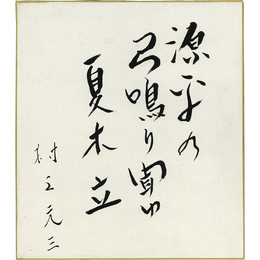 源平の
弓鳴り聞ゆ
夏木立
村上元三